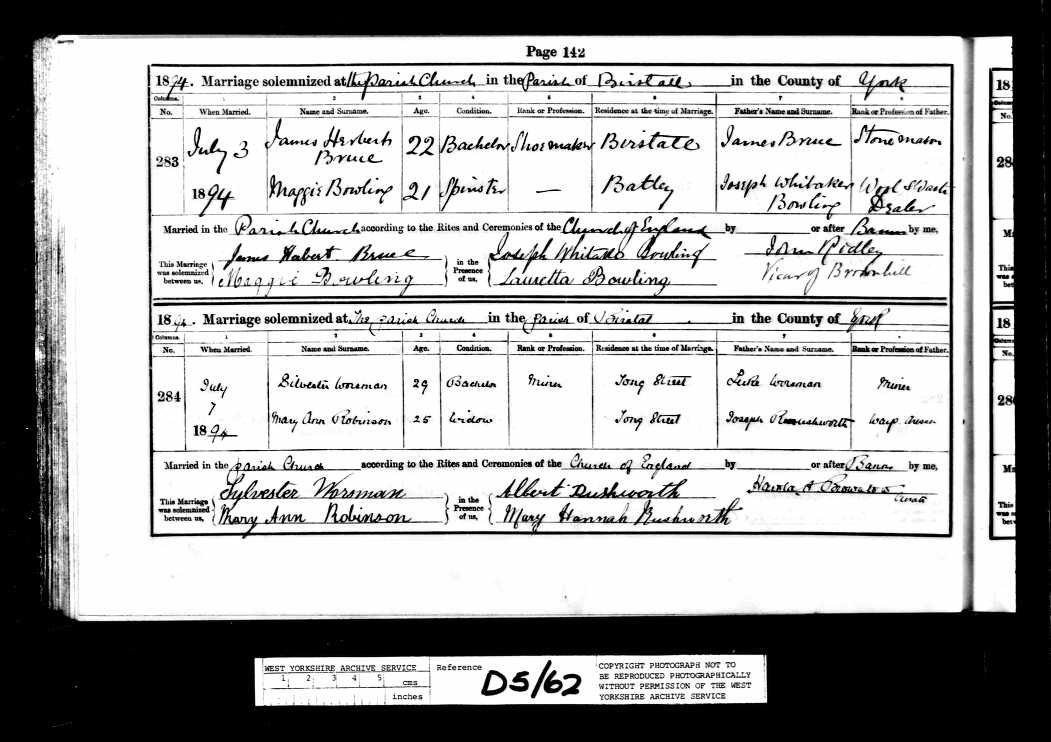 Page 142
1894. Marriage solemnized at the Parish Church in the Parish of Birstall in the County of York
Columns. 1 2 3 4 5 6 7 8
No. When Married. Name and Surname. Age. Condition. Rank or Profession. Residence at the time of Marriage. Father's Name and Surname. Rank or Profession of Father.
283 July 3 1894 James Herbert Bruce 22 Bachelor Shoemaker Birstall James Bruce Stone mason
Maggie Bowling 21 Spinster — Batley Joseph Whitaker Bowling Wool & Waste Dealer
Married in the Parish Church according to the Rites and Ceremonies of the Church of England by or after Banns by me,
This Marriage was solemnized between us, James Herbert Bruce
Maggie Bowling
in the Presence of us, Joseph Whitaker Bowling
Lauretta Bowling
John Ridley
Vicar of Brownhill
1894. Marriage solemnized at The parish Church in the parish of Birstal in the County of York
Columns. 1 2 3 4 5 6 7 8
No. When Married. Name and Surname. Age. Condition. Rank or Profession. Residence at the time of Marriage. Father's Name and Surname. Rank or Profession of Father.
284 July 7 1894 Silvester Worsman 29 Bachelor Miner Tong Street Luke Worsman Miner
Mary Ann Robinson 25 Widow Tong Street Joseph Rushworth Warp
Married in the parish Church according to the Rites and Ceremonies of the Church of England by or after Banns by me,
This Marriage was solemnized between us, Sylvester Worsman
Mary Ann Robinson
in the Presence of us, Albert Rushworth
Mary Hannah Rushworth
Harold A
Curate
WEST YORKSHIRE ARCHIVE SERVICE
1 2 3 4 5 cms
inches
Reference
D5/62
COPYRIGHT PHOTOGRAPH NOT TO
BE REPRODUCED PHOTOGRAPHICALLY
WITHOUT PERMISSION OF THE WEST
YORKSHIRE ARCHIVE SERVICE